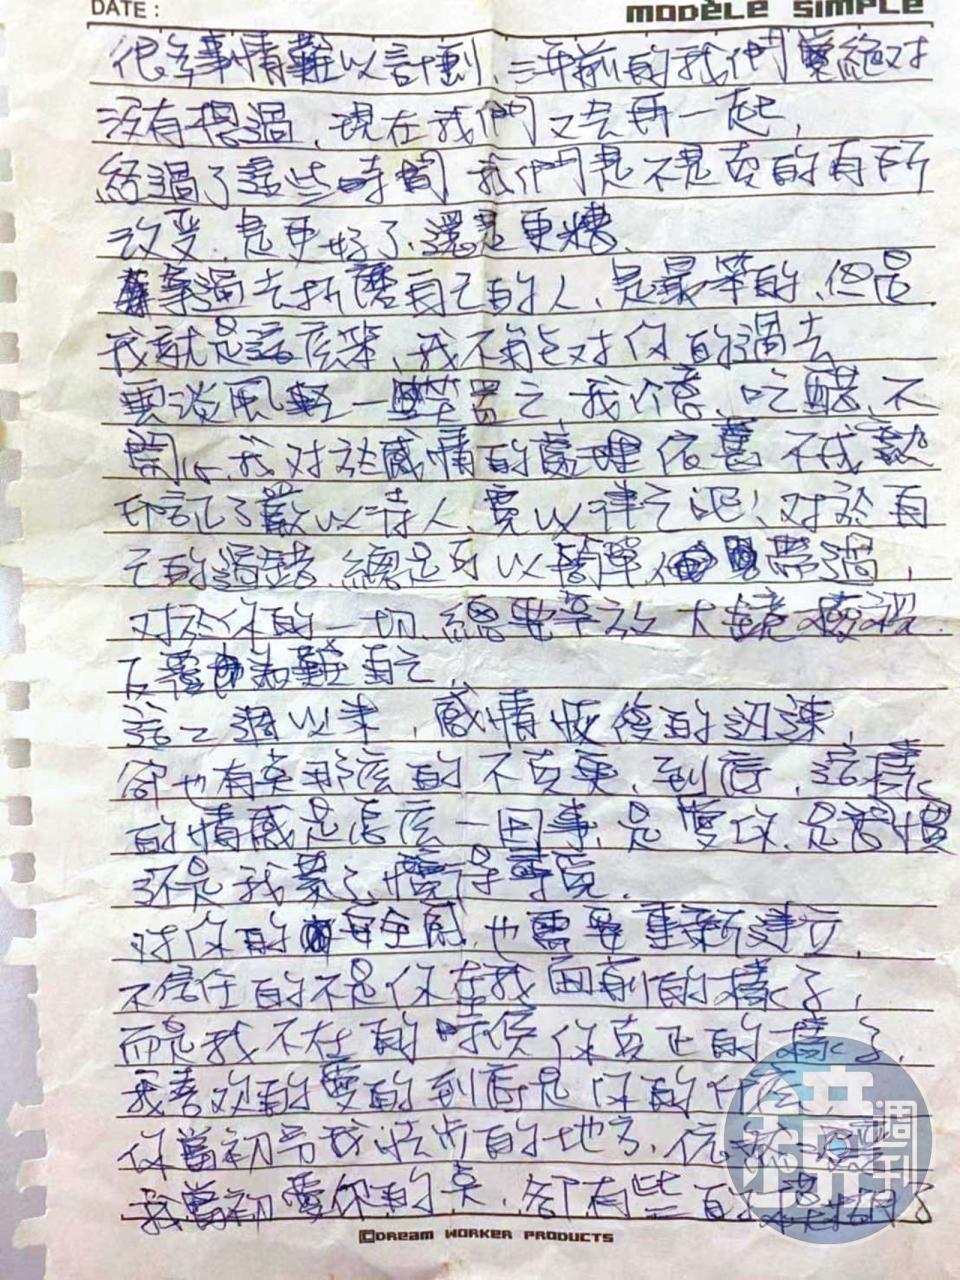 DATE:
MODÈLE SIMPLE
很多事情難以計劃,三年前的我們 絕对
沒有想過,現在我們又走再一起,
經過了這些時間 我們是不是真的有所
改变,是更好了,還是更糟,
拿過去折磨自己的人,是最笨的,但是
我就是這底笨,我不能对你的過去
雲淡風輕一笑置之 我介意,吃醋,不
開心,我对於感情的處理依舊不成熟
忘了嚴以待人,寬以律己吧!对於自
己的過錯,總是可以簡單 帶過,
对於你的一切,總要拿放大鏡檢視,
反覆 為難自己,
這二週以來,感情恢復的迅速,
卻也有點 的不真實,到底,這樣
的情感是怎底一回事,是愛你,是習慣
还是我 懂得尋覓,
对你的安全感,也需要重新建立,
不信任的不是你在我面前的樣子,
而是我不在的時候你真正的樣子,
我喜欢的愛的到底是你的什
你當初 的地方,依
我當初愛你的点,卻有些
©DREAM WORKER PRODUCTS
週刊